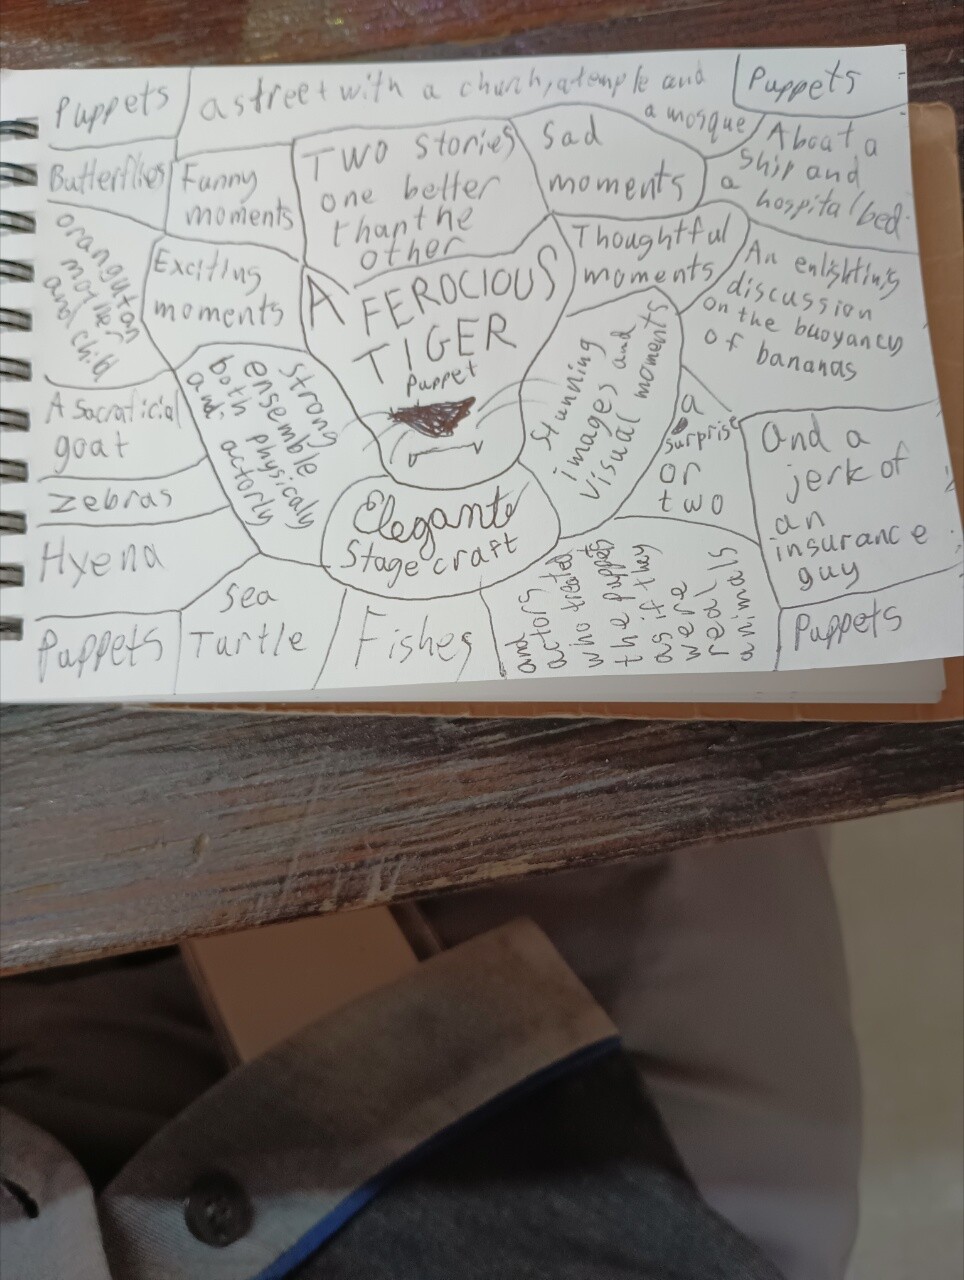 Puppets
a street with a church, a temple and
a mosque
Puppets
Butterflies
Funny
moments
TWO stories
one better
than the
other
Sad
moments
About a
ship and
a hospital bed.
orangutan
mother
and child
Exciting
moments
A FEROCIOUS
TIGER
Puppet
Thoughtful
moments
An enlighting
discussion
on the buoyancy
of bananas
A Sacraficial
goat
Strong
ensemble
both physicaly
and actorly
Stunning
images and
visual moments
a
surprise
or
two
And a
jerk of
an
insurance
guy
Zebras
Hyena
Elegant
Stage craft
Puppets
Sea
Turtle
Fishes
and
actors
who treated
the puppets
as if they
were
real
animals
Puppets